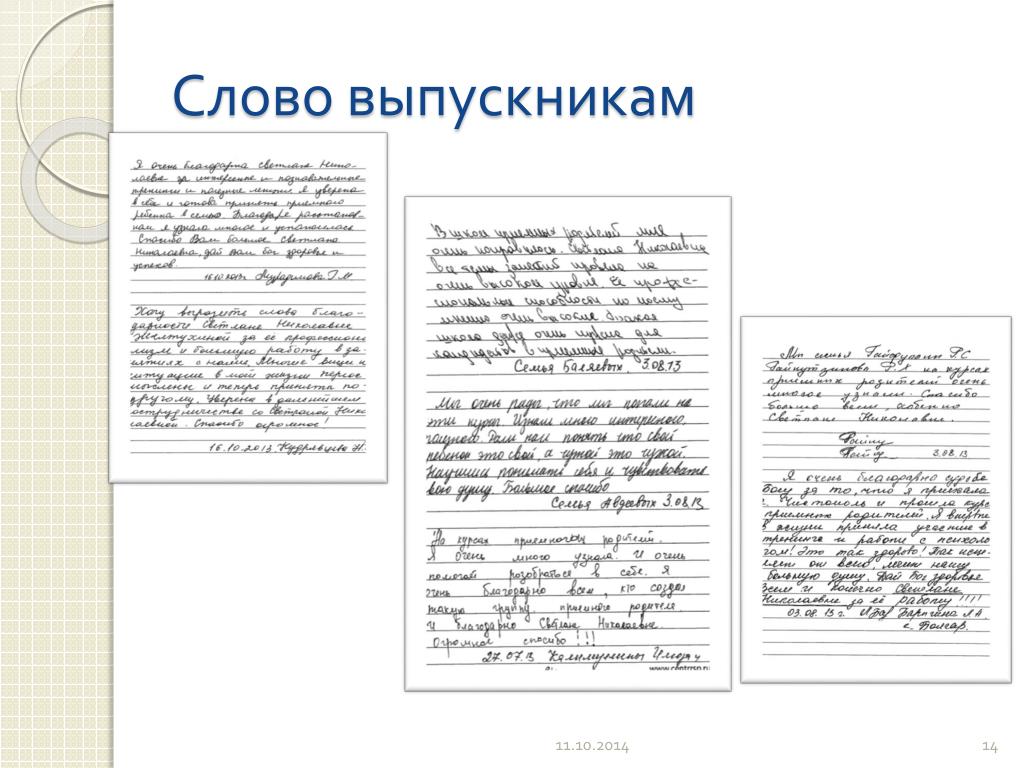 Слово выпускникам
Я очень благодарна Светлане Нико-
лаевне за интересные и познавательные
тренинги и полезные лекции. Я уверена
в себе и готова принять приемного
ребенка в семью. Благодаря расстанов-
кам я узнала многое и успокоилась
Спасибо Вам большое Светлана
Николаевна, дай Вам бог здоровья и
успехов.
16.10.2013
Хочу выразить слова благо-
дарности Светлане Николаевне
Желтухиной за её профессиона-
лизм и большую работу в за-
нятиях с нами. Многие вещи и
ситуации в моей жизни перео-
мыслены и теперь приняты по-
другому. Уверена в дальнейшем
сотрудничестве со Светланой Нико
лаевной. Спасибо огромное!
16.10.2013 Кудрявцева Н.
В школе приемных родителей мне
очень понравилось. Светлана Николаевна
все темы занятий провела на
очень высоком уровне. Её профес-
сиональные способности по моему
мнению очень высокие. Такая
школа очень нужна для
кандидатов в приемные родители.
Семья Баляевых. 3.08.13
Мы очень рады, что мы попали на
эти курсы. Узнали много интересного,
Дали нам понять что свой
ребенок это свой, а чужой это чужой.
Научили понимать себя и чувствовать
свою душу. Большое спасибо
Семья Авдеевых 3.08.13
На курсах приемного родителя.
Я очень много узнала. И очень
помогли разобраться в себе. Я
очень благодарна всем, кто создал
такую группу приемного родителя
И благодарна Светлане Николаевне.
Огромное спасибо!!!
27.07.13
www.centrrsp.ru
Мы семья Гайфуллин Р.С
Гайнутдинова Р.Х на курсах
приемных родителей очень
многое узнали. Спасибо
большое всем, особенно
Светлане Николаевне.
3.08.13
Я очень благодарна судьбе
Богу за то, что я приехала
г. Чистополь и прошла курс
приемных родителей. Я впервые
в жизни приняла участие в
тренинге и работе с психоло
гом! Это так здорово! Так исце-
ляет он всего, лечит нашу
больную душу. Дай бог здоровье
всем и конечно Светлане
Николаевне за её работу!!!!
03.08.13 г.
с. Болгар.
11.10.2014
14